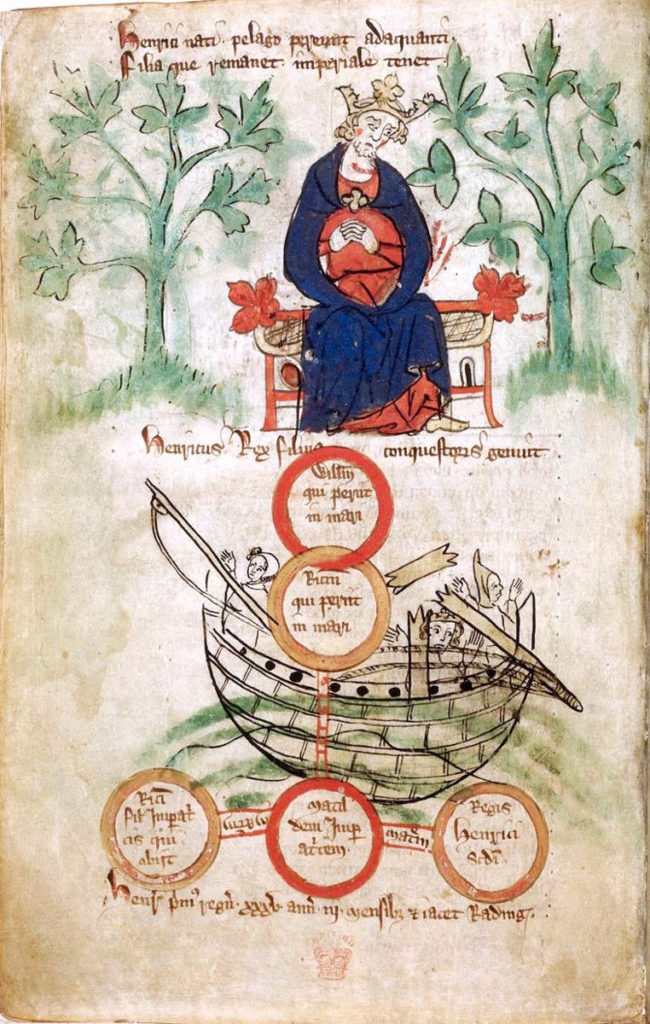 Henrici nati pelago pereunt adaquanti
Filia que remanet imperiale tenet
Henricus Rex filius conquestoris genuit
Willm
qui periit
in mari
Ricm
qui periit
in mari
Rici
fil
cis qui
obiit
Matil
dem Imp
atcem
matrem
Regis
Henrici
Scdi
Henr pmus regn xxxv ann iii mensibz & iacet Rading